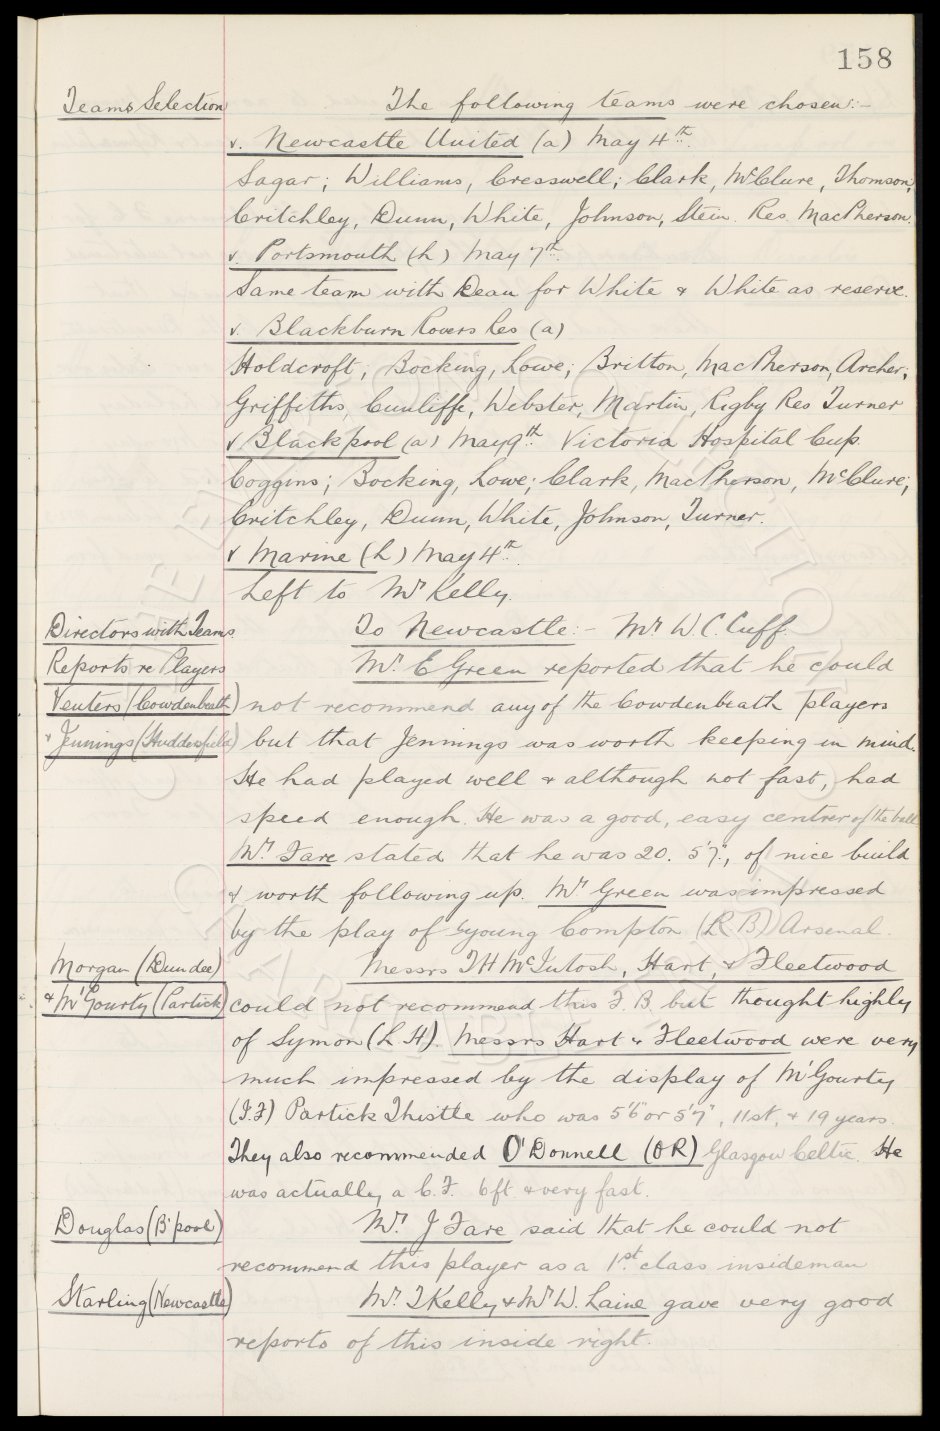 158
Teams Selection The following teams were chosen:-
v. Newcastle United (a) May 4th.
Sagar; Williams, Cresswell; Clark, McClure, Thomson;
Critchley, Dunn, White, Johnson, Stein. Res. MacPherson.
v. Portsmouth (h) May 7th.
Same team with Dean for White & White as reserve.
v. Blackburn Rovers Res (a)
Holdcroft; Bocking, Lowe; Britton, MacPherson, Archer;
Griffiths, Cunliffe, Webster, Martin, Rigby Res Turner
v Blackpool (a) May 9th. Victoria Hospital Cup.
Coggins; Bocking, Lowe; Clark, MacPherson, McClure;
Critchley, Dunn, White, Johnson, Turner.
v Marine (h) May 4th.
Left to Mr Kelly.
Directors with Teams To Newcastle:- Mr W.C. Cuff.
Reports re Players Mr. E Green reported that he could
Venters (Cowdenbeath) not recommend any of the Cowdenbeath players
& Jennings (Huddersfield) but that Jennings was worth keeping in mind.
He had played well & although not fast, had
speed enough. He was a good, easy centrer of the ball
Mr. Fare stated that he was 20. 5'7", of nice build
& worth following up. Mr Green was impressed
by the play of young Compton (R.B) Arsenal.
Morgan (Dundee) Messrs TH McIntosh, Hart, & Fleetwood
& M'Gourty (Partick) could not recommend this F.B. but thought highly
of Symon (L.H). Messrs Hart & Fleetwood were very
much impressed by the display of M'Gourty,
(I.F) Partick Thistle who was 5'6" or 5'7", 11st, & 19 years.
They also recommended O'Donnell (OR) Glasgow Celtic. He
was actually a C.F. 6ft & very fast.
Douglas (B'pool) Mr. J Fare said that he could not
recommend this player as a 1st. class insideman
Starling (Newcastle) Mr. T Kelly & Mr W. Laine gave very good
reports of this inside right.